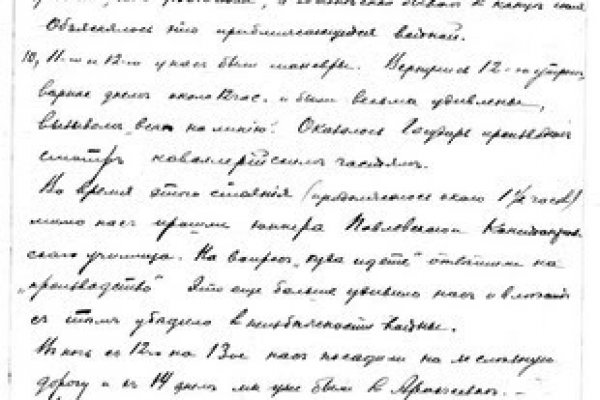 Объяснялось это приближающейся войной.
10, 11-го и 12-го у нас были маневры. Вернулись 12-го утром,
вернее днем около 12 час. и были весьма удивлены,
вызывом „всех на линию". Оказалось Государь производил
смотр кавалерийским частям.
Во время этого стояния (продолжалось около 1½ часов)
мимо нас прошли юнкера Павловского
училища. На вопрос „куда идете" отвечали на
„производство" Это еще больше удивило нас и
с тем убедило в неизбежности войны.
В ночь с 12-го на 13-ое нас посадили на железную
дорогу и 14 днем мы уже были в